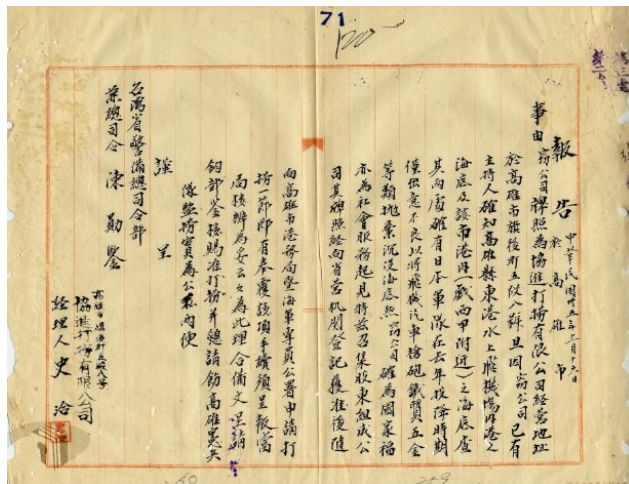 71
報告 於高雄市
中華民國卅五年三月十六日
事由 竊公司牌照為協進打撈有限公司經營地址
於高雄市旗後町五段八號且因竊公司已有
主持人確知高雄縣東港水上飛機場內港之
海底及該市港內(戲西甲附近)之海底查
其兩處確有日本軍隊在去年投降時期
僅出意不良以將飛機汽車槍砲鐵質五金
等類拋棄沉沒海底然竊公司確為國家福
亦為社會服務起見特茲召集股東組成公
司其牌照経向省営机関登記獲准後随
向高雄市港務局暨海軍專員公署申請打
撈一節即有奉覆該項手續須呈報當
局核辦為妥云云為此理合備文呈請
鈞部鉴核賜准打撈并懇請飭高雄憲兵
隊監撈實為公私両便
謹呈
台灣省警備總司令部
兼總司令 陳 勛鑒
高雄市旗後町五段八号
協進打撈有限公司
経理人 史洽